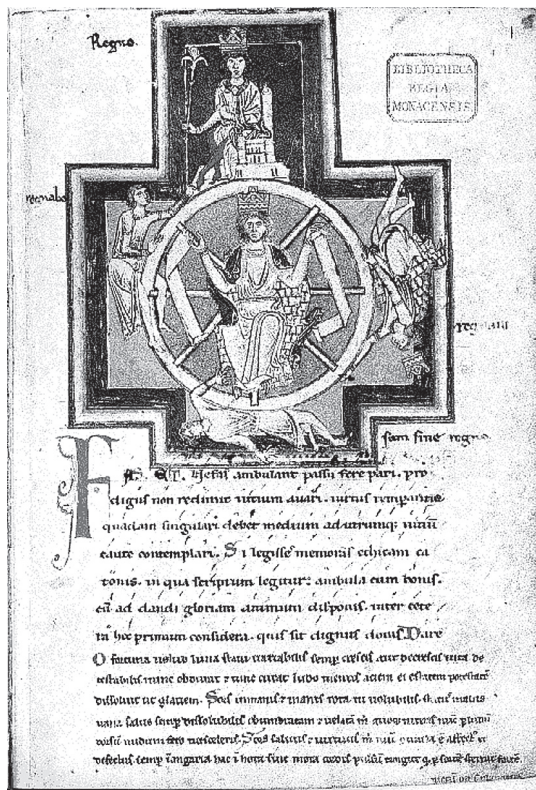 Regno.
BIBLIOTHECA
REGIA
MONACENSIS.
regnabo
regnaui
sum sine regno
FAS ET Nefas ambulant passu fere pari. pro
digus non redimit uitium auari. uirtus temperantia
quadam singulari debet medium ad utrumq; uitiū
caute contemplari. Si legisse memoras ethicam ca
tonis. in qua scriptum legitur: ambula cum bonis.
cū ad dandi gloriam animum disponis. inter cete
ra hoc primum considera. quis sit dignus donis Dare
O fortuna uelud luna statu uariabilis semp crescis aut decrescis uita de
testabilis nunc obdurat & tunc curat ludo mentis aciem egestatem potestatē
dissoluit ut glaciem. Sors immanis & inanis rota tu uolubilis. status malus
uana salus semp dissolubilis obumbratam & uelatā m quoq; niteris nūc p ludum
dorsū nudum fero tui sceleris. Sors salutis & uirtutis m nūc
defectus semp in angaria hac ī hora sine mora cordis pulsū tangite q p sortē sternit fortē.
mecū